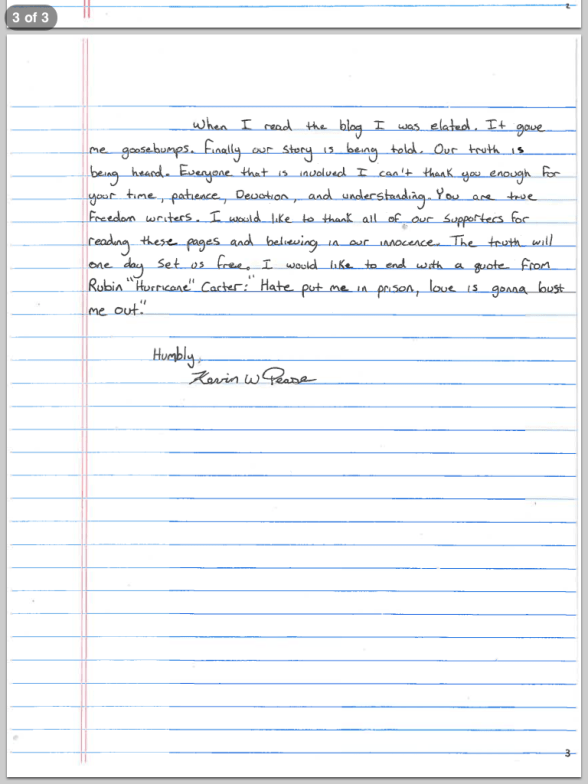 2
3 of 3
When I read the blog I was elated. It gave
me goosebumps. Finally our story is being told. Our truth is
being heard. Everyone that is involved I can't thank you enough for
your time, patience, Devotion, and understanding. You are true
Freedom writers. I would like to thank all of our supporters for
reading these pages and believing in our innocence. The truth will
one day set us free. I would like to end with a quote from
Rubin "Hurricane" Carter: "Hate put me in prison, love is gonna bust
me out."
Humbly,
Kevin W Pease
3